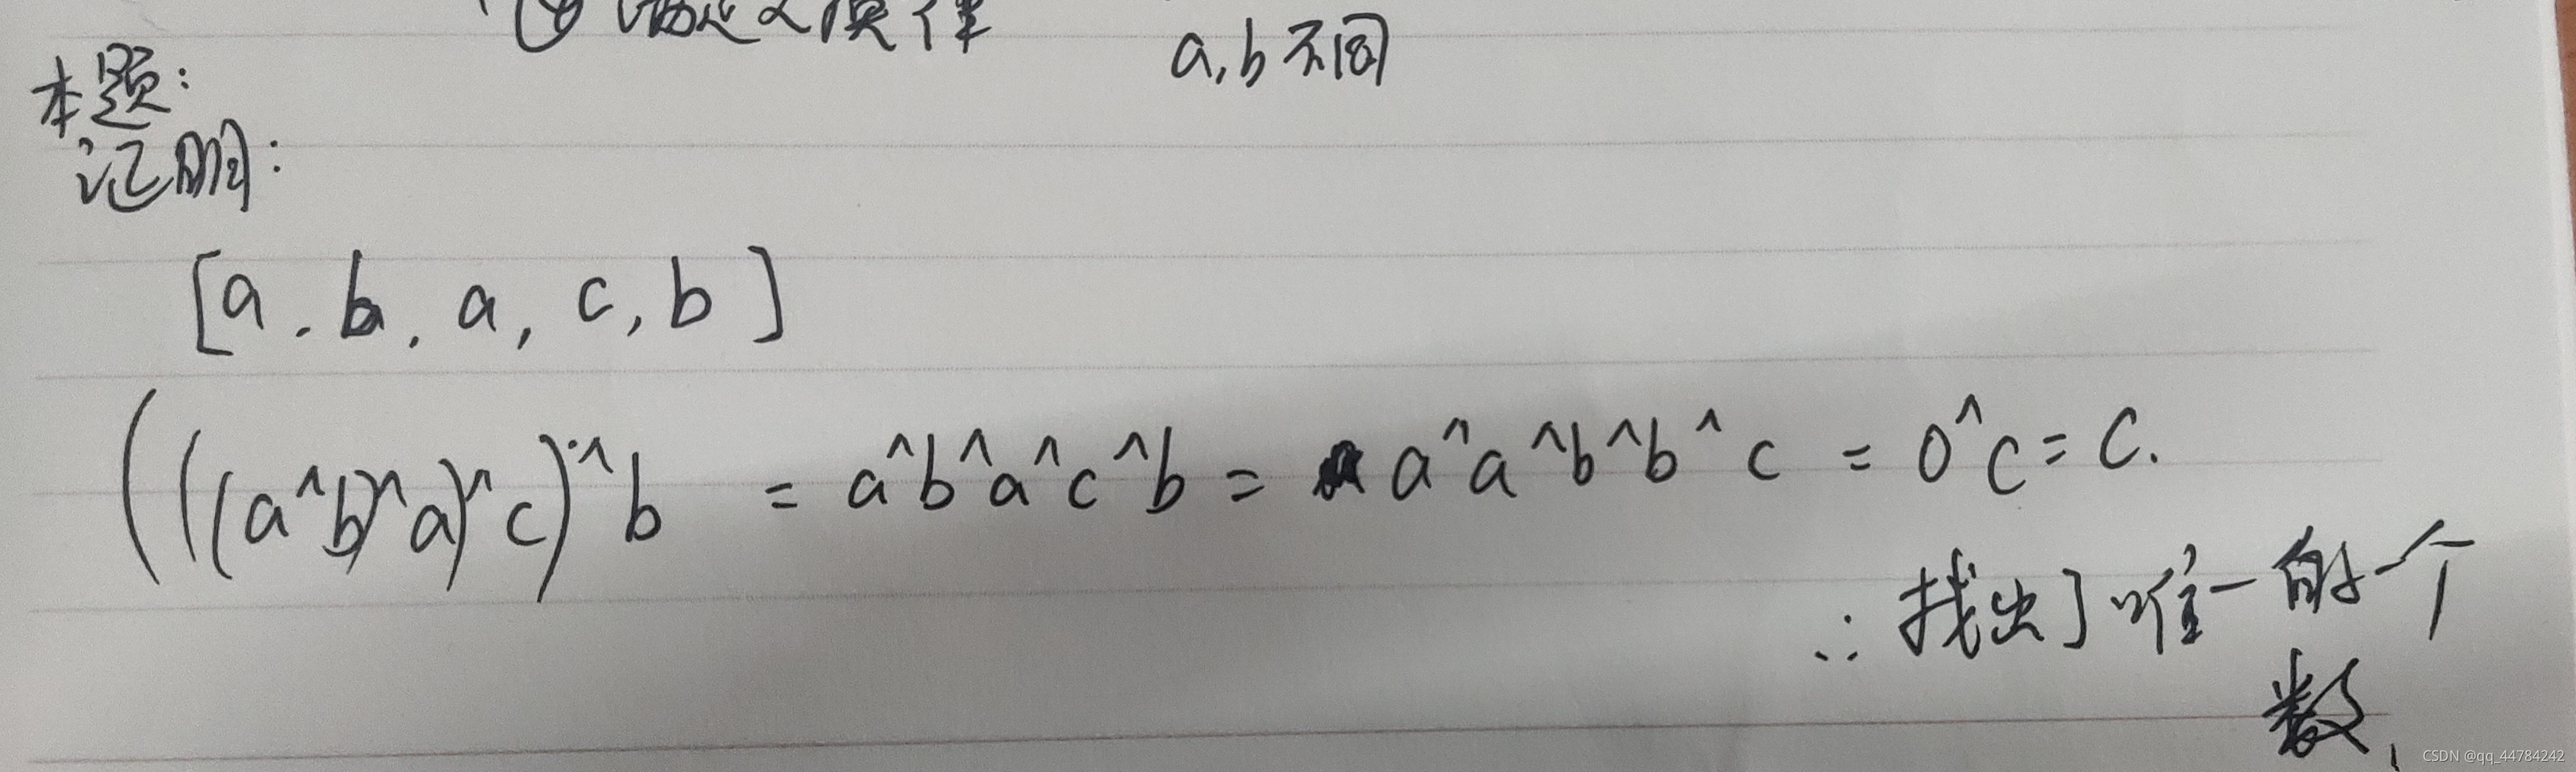 ④ 满足交换律
a,b不同
本题:
证明:
[a, b, a, c, b]
(((a^b)^a)^c)^b = a^b^a^c^b = a^a^b^b^c = 0^c = c.
∴ 找出了唯一的一个
数,
CSDN @qq_44784242